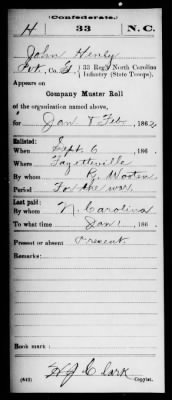 (Confederate.)
H 33 N.C.
John Henry
Pvt, Co. G, 33 Reg't North Carolina
Infantry (State Troops).
Appears on
Company Muster Roll
of the organization named above,
for Jan & Feb, 1862
Enlisted:
When Sept. 6, 186
Where Fayetteville
By whom R. Wooten
Period For the war
Last paid:
By whom N. Carolina
To what time Jan 1, 186
Present or absent Present
Remarks:
Book mark:
(642) Clark
Copyist.